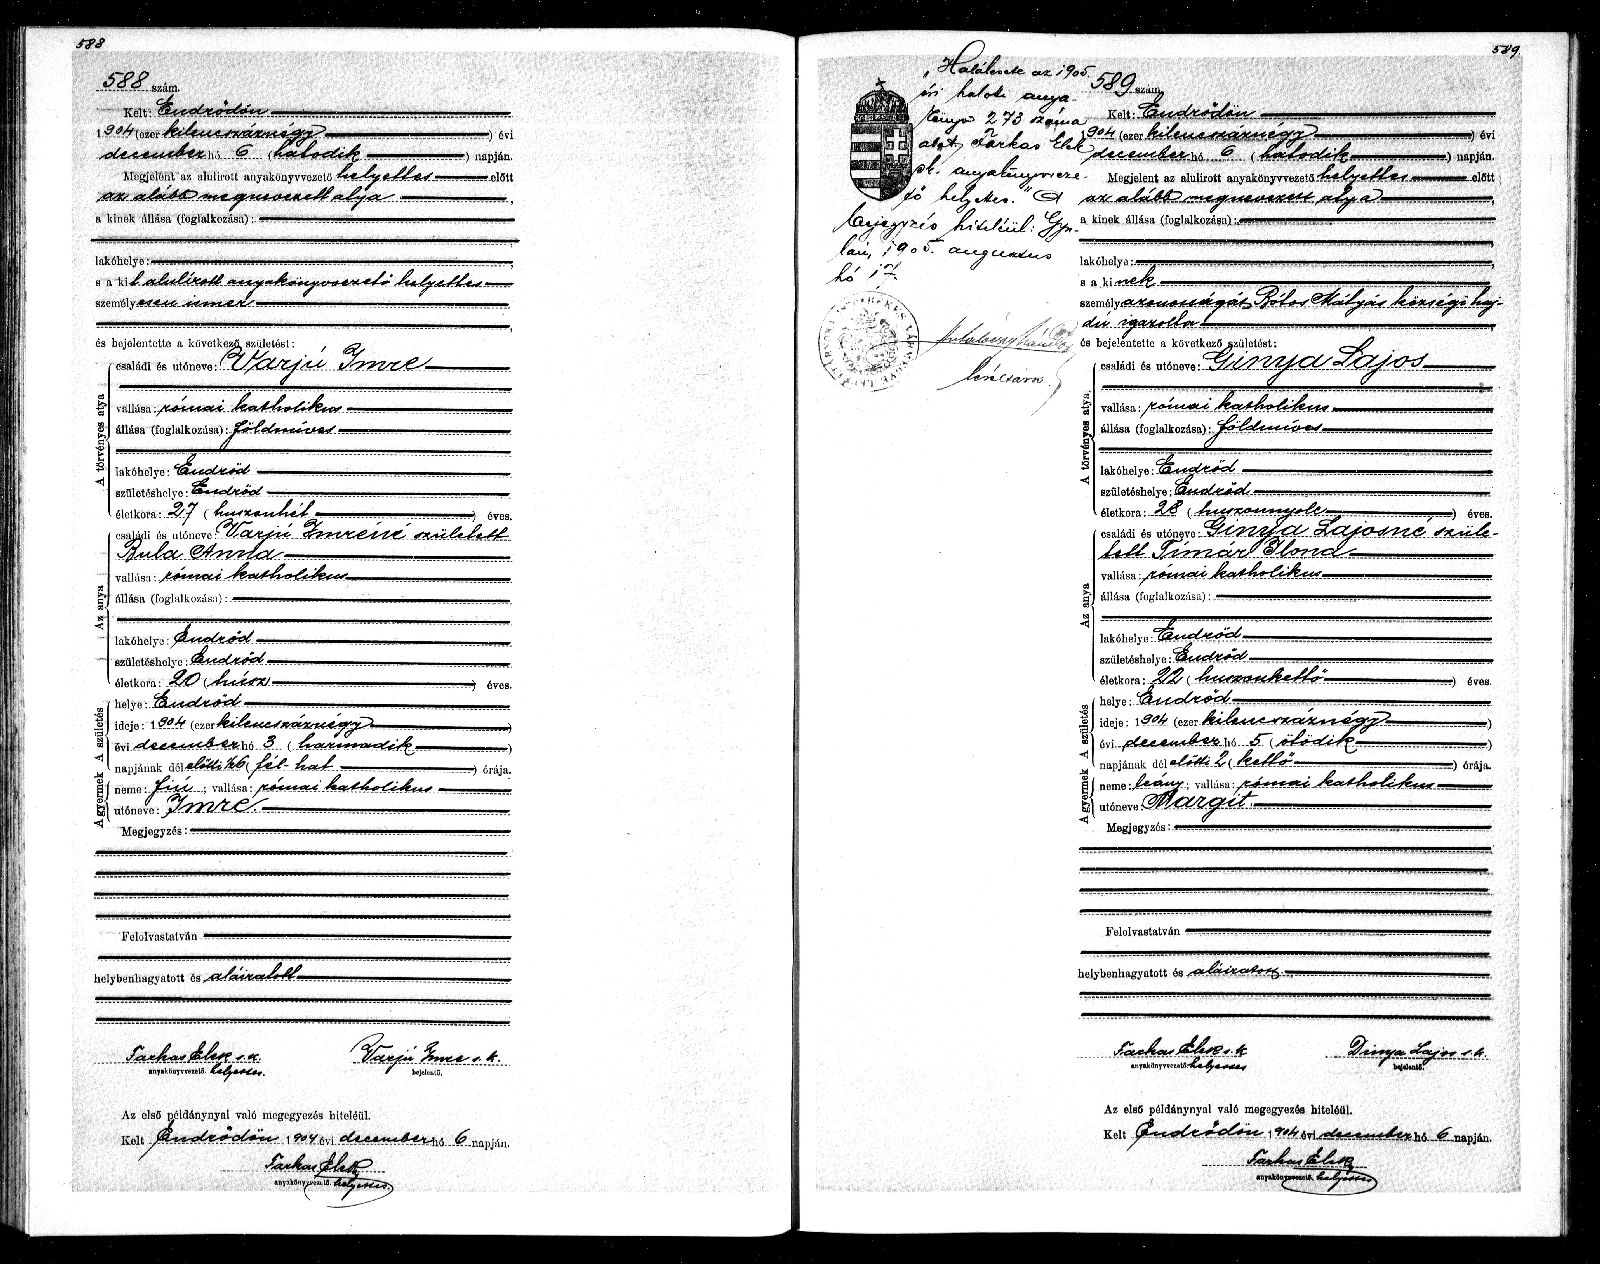 588
588 szám.
Kelt: Endrődön
1904 (ezer kilencszáznégy) évi
december hó 6 (hatodik) napján.
Megjelent az alulirott anyakönyvvezető helyettes előtt
az alább megnevezett atya,
a kinek állása (foglalkozása):
lakóhelye:
s a kit alulírott anyakönyvvezető helyettes
személyesen ismer
és bejelentette a következő születést:
A törvényes atya
családi és utóneve: Varjú Imre
vallása: római katholikus
állása (foglalkozása): földmíves
lakóhelye: Endrőd
születéshelye: Endrőd
életkora: 27 (huszonhét) éves.
Az anya
családi és utóneve: Varjú Imréné született
Bula Anna
vallása: római katholikus
állása (foglalkozása):
lakóhelye: Endrőd
születéshelye: Endrőd
életkora: 20 (húsz) éves.
A születés
helye: Endrőd
ideje: 1904 (ezer kilencszáznégy)
évi december hó 3 (harmadik)
napjának dél előtti ½6 (fél-hat) órája.
A gyermek
neme: fiú; vallása: római katholikus
utóneve: Imre.
Megjegyzés:
Felolvastatván
helybenhagyatott és aláiratott
Farkas Elek s. k. Varjú Imre s. k.
anyakönyvvezető helyettes. bejelentő.
Az első példánynyal való megegyezés hiteléül.
Kelt Endrődön 1904 évi december hó 6 napján.
Farkas Elek
anyakönyvvezető. helyettes.
589
„Halálesete az 1905.
évi haloti anya-
könyv 273 száma
alatt, Farkas Elek
sk. anyakönyvveze-
tő helyettes." A
bejegyzés hiteléül: Gyu-
lán, 1905. augusztus
hó 17.
589 szám.
Kelt: Endrődön
1904 (ezer kilencszáznégy) évi
december hó 6 (hatodik) napján.
Megjelent az alulirott anyakönyvvezető helyettes előtt
az alább megnevezett atya,
a kinek állása (foglalkozása):
lakóhelye:
s a kinek
személyazonosságát Bótos Mátyás községi haj-
dú igazolta
és bejelentette a következő születést:
A törvényes atya
családi és utóneve: Ginya Lajos
vallása: római katholikus
állása (foglalkozása): földmíves
lakóhelye: Endrőd
születéshelye: Endrőd
életkora: 28 (huszonnyolc) éves.
Az anya
családi és utóneve: Ginya Lajosné szüle-
tett Tímár Ilona
vallása: római katholikus
állása (foglalkozása):
lakóhelye: Endrőd
születéshelye: Endrőd
életkora: 22 (huszonkettő) éves.
A születés
helye: Endrőd
ideje: 1904 (ezer kilencszáznégy)
évi december hó 5 (ötödik)
napjának dél előtti 2 (kettő) órája.
A gyermek
neme: leány; vallása: római katholikus
utóneve: Margit.
Megjegyzés:
Felolvastatván
helybenhagyatott és aláiratott.
Farkas Elek s. k. Dinya Lajos s. k.
anyakönyvvezető. helyettes bejelentő.
Az első példánynyal való megegyezés hiteléül.
Kelt Endrődön 1904 évi december hó 6 napján.
Farkas Elek
anyakönyvvezető. helyettes